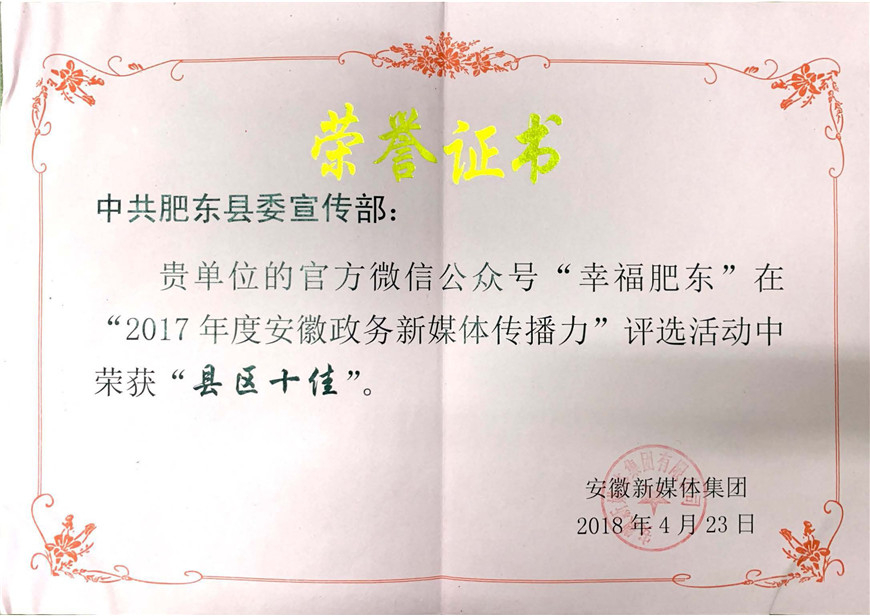 荣誉证书
中共肥东县委宣传部：
贵单位的官方微信公众号“幸福肥东”在
“2017 年度安徽政务新媒体传播力”评选活动中
荣获“县区十佳”。
安徽新媒体集团
2018 年 4 月 23 日